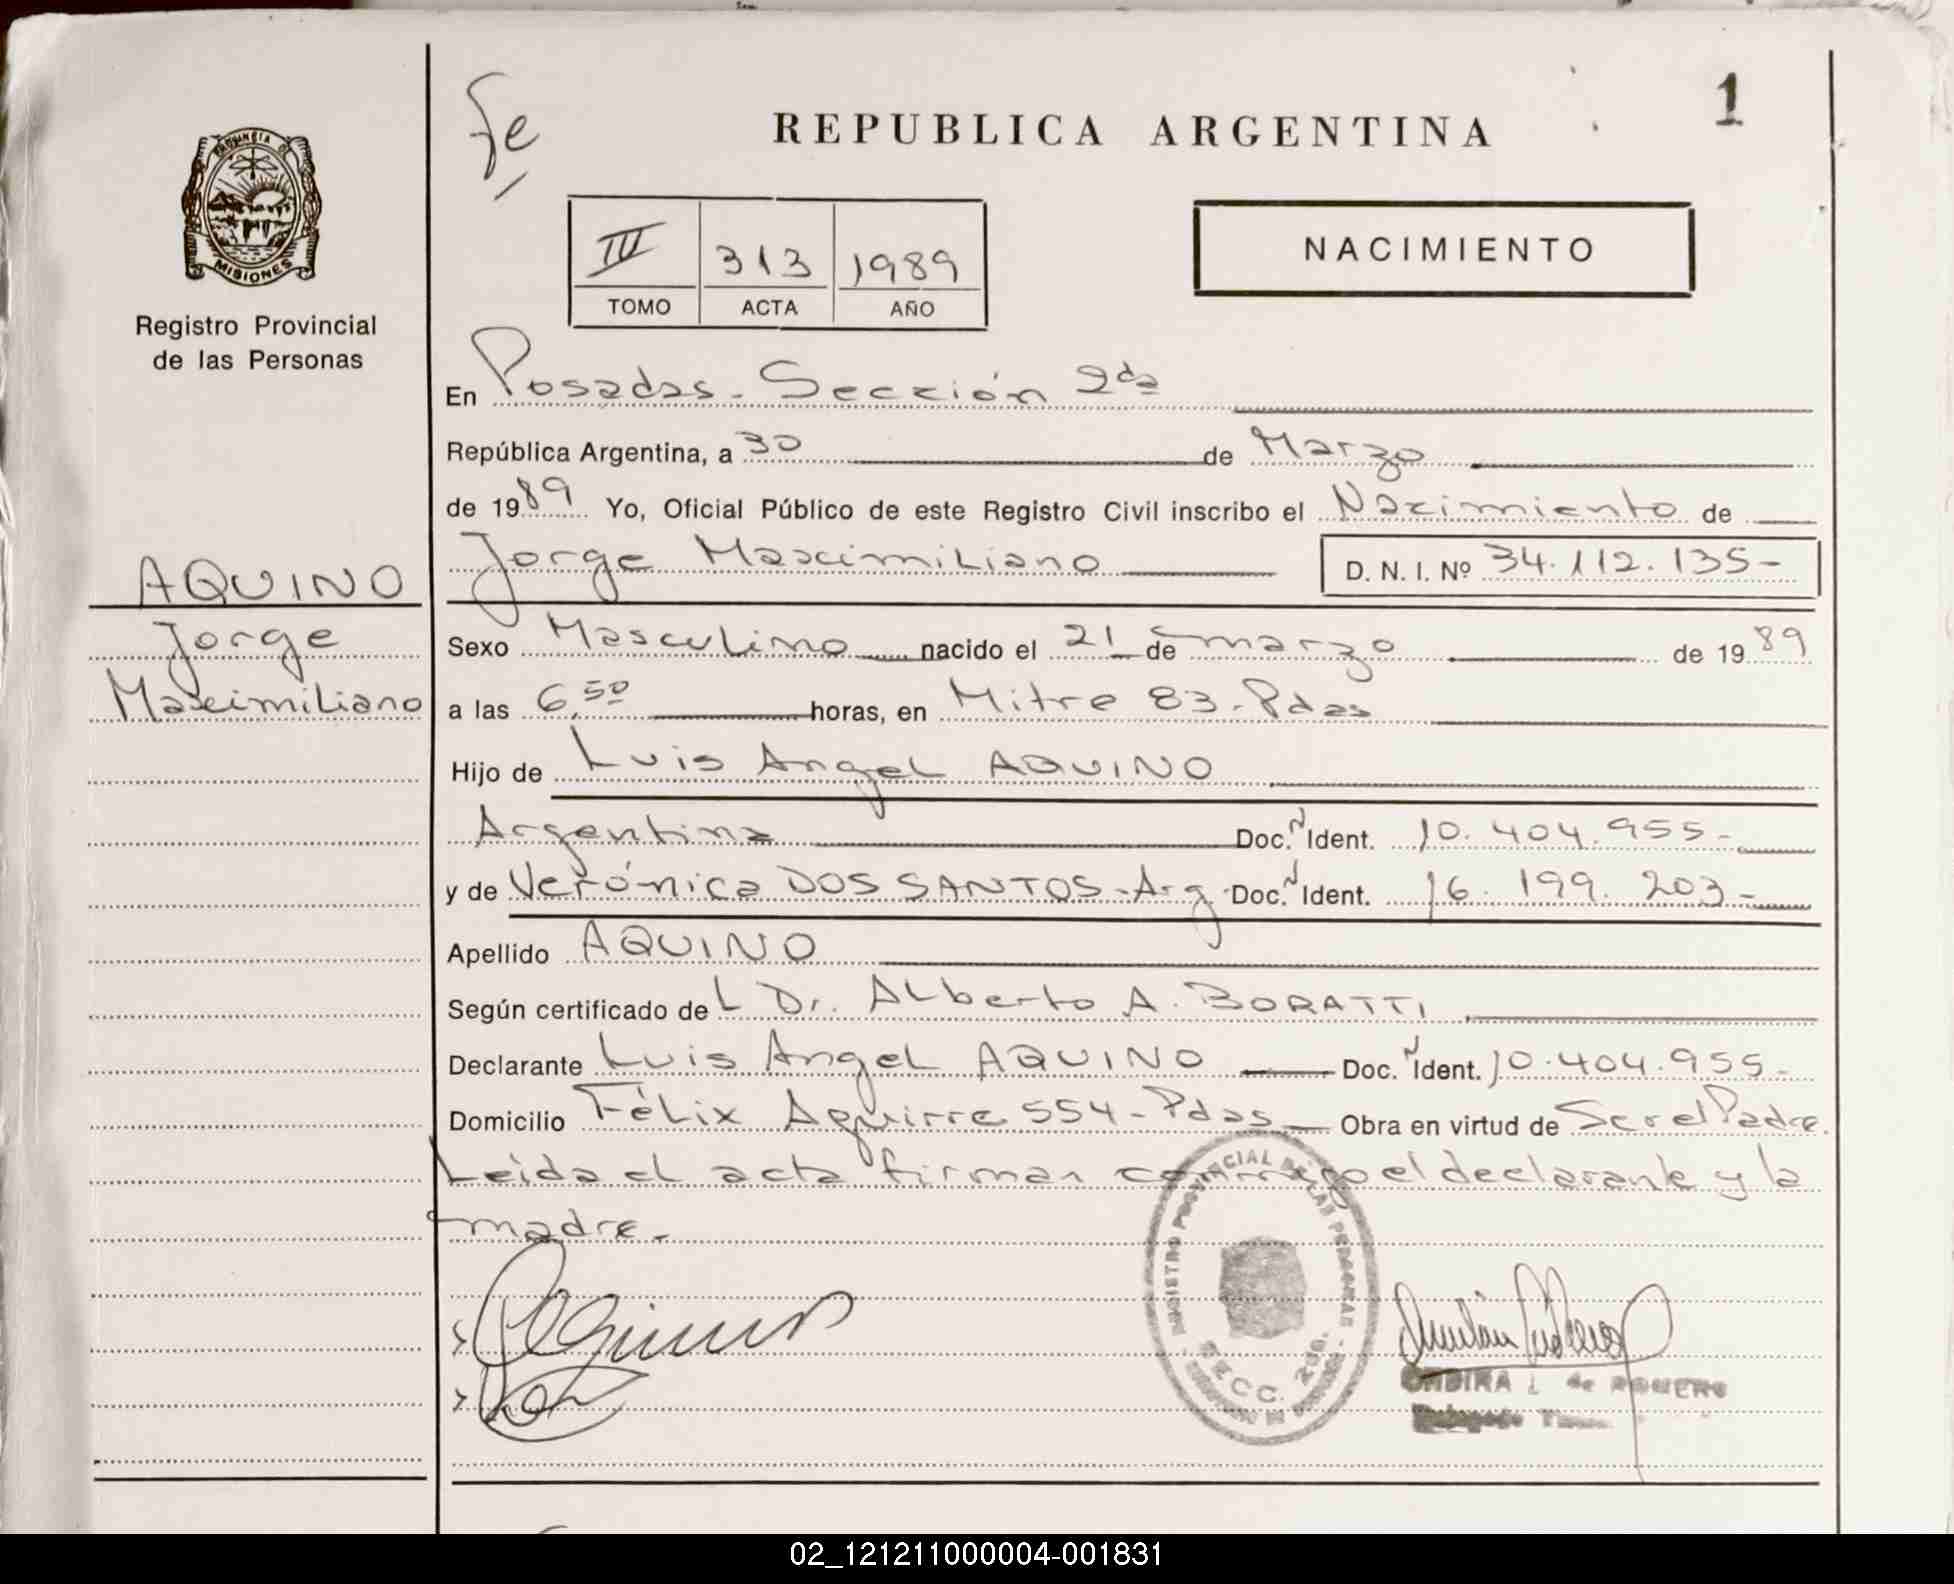 REPUBLICA ARGENTINA
1
Fe
PROVINCIA DE
MISIONES
Registro Provincial
de las Personas
IV 313 1989
TOMO ACTA AÑO
NACIMIENTO
En Posadas - Sección 2da
República Argentina, a 30 de Marzo
de 1989 Yo, Oficial Público de este Registro Civil inscribo el Nacimiento de
Jorge Maximiliano D. N. I. Nº 34.112.135-
AQUINO
Jorge
Maximiliano
Sexo Masculino nacido el 21 de marzo de 1989
a las 6,50 horas, en Mitre 83 - Pdas
Hijo de Luis Angel AQUINO
Argentina Doc. N Ident. 10.404.955-
y de Verónica DOS SANTOS - Arg Doc. N Ident. 16.199.203-
Apellido AQUINO
Según certificado del Dr. Alberto A. BORATTI
Declarante Luis Angel AQUINO Doc. N Ident. 10.404.955-
Domicilio Félix Aguirre 554 - Pdas Obra en virtud de Ser el Padre.
Leida el acta firman conmigo el declarante y la
madre.
REGISTRO PROVINCIAL DE LAS PERSONAS
SECC. 2da.
de AGUERO
02_121211000004-001831